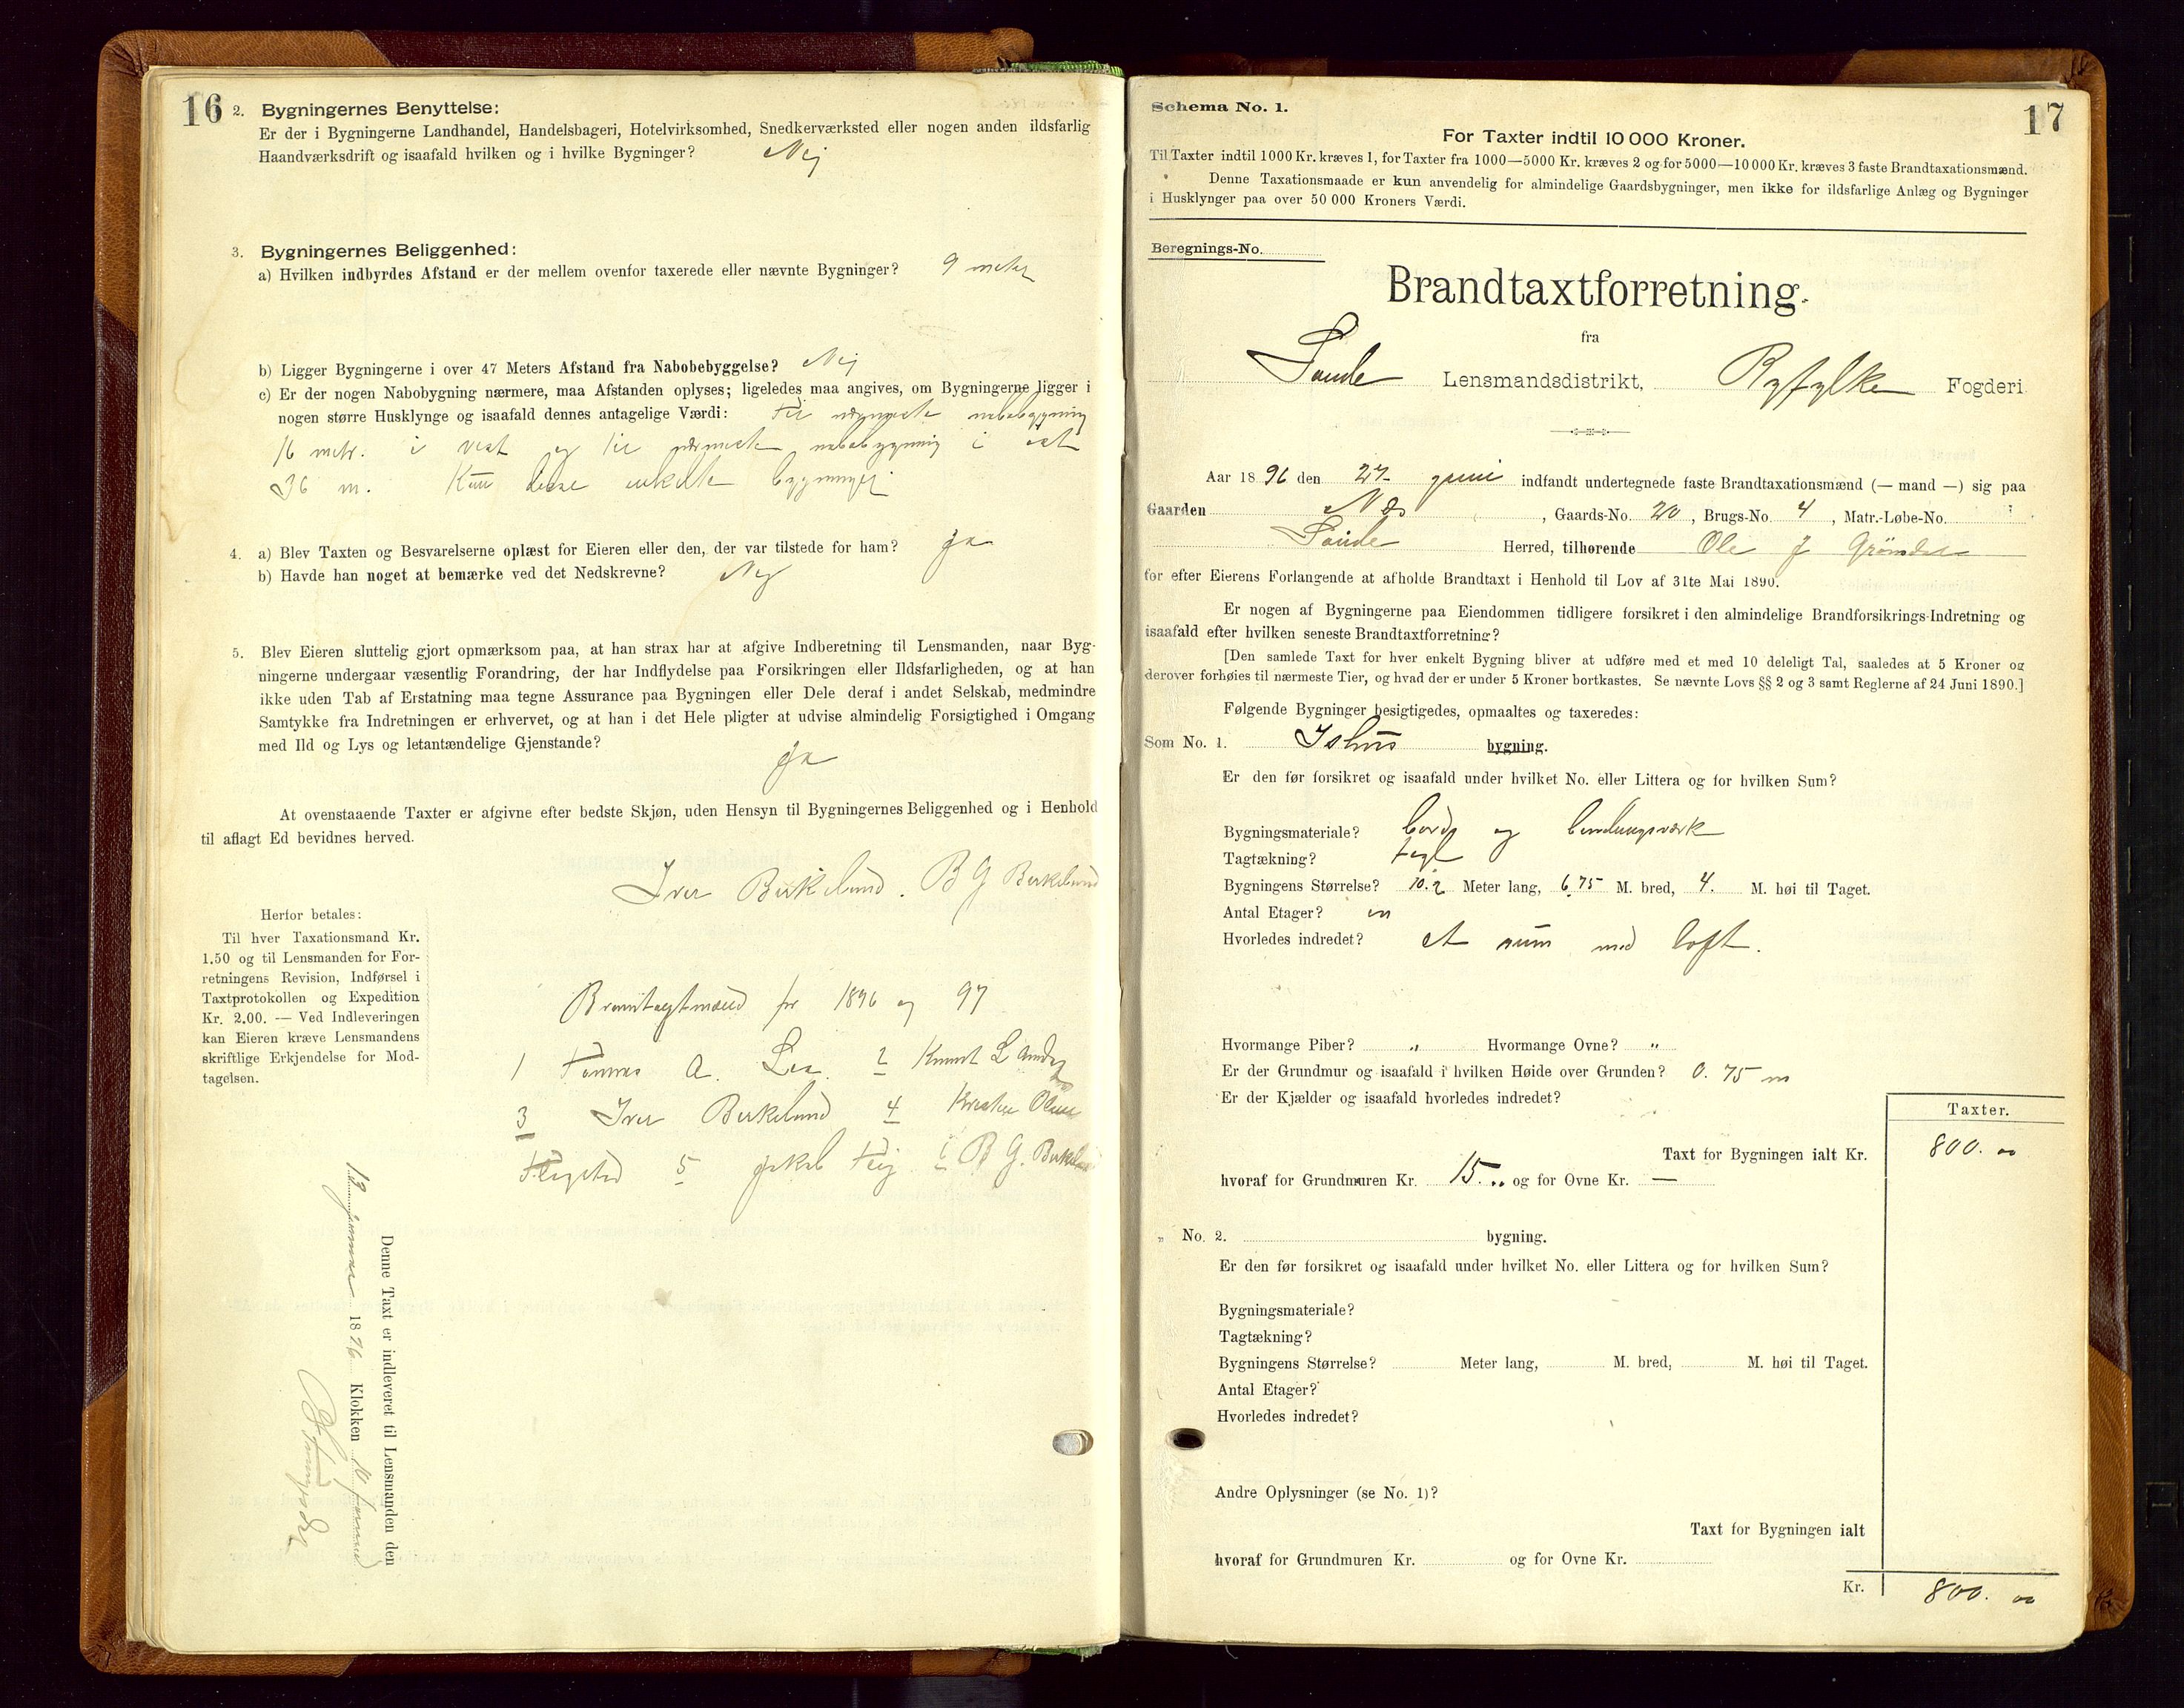 16
2. Bygningernes Benyttelse:
Er der i Bygningerne Landhandel, Handelsbageri, Hotelvirksomhed, Snedkerværksted eller nogen anden ildsfarlig
Haandværksdrift og isaafald hvilken og i hvilke Bygninger? Nej
3. Bygningernes Beliggenhed:
a) Hvilken indbyrdes Afstand er der mellem ovenfor taxerede eller nævnte Bygninger? 9 meter
b) Ligger Bygningerne i over 47 Meters Afstand fra Nabobebyggelse? Nej
c) Er der nogen Nabobygning nærmere, maa Afstanden oplyses; ligeledes maa angives, om Bygningerne ligger i
nogen større Husklynge og isaafald dennes antagelige Værdi: til nabobygning
16 metr. i vest og til nærmeste nabobygning i øst
36 m. Kun disse enkelte bygninger
4. a) Blev Taxten og Besvarelserne oplæst for Eieren eller den, der var tilstede for ham? ja
b) Havde han noget at bemærke ved det Nedskrevne? Nej
5. Blev Eieren sluttelig gjort opmærksom paa, at han strax har at afgive Indberetning til Lensmanden, naar Byg-
ningerne undergaar væsentlig Forandring, der har Indflydelse paa Forsikringen eller Ildsfarligheden, og at han
ikke uden Tab af Erstatning maa tegne Assurance paa Bygningen eller Dele deraf i andet Selskab, medmindre
Samtykke fra Indretningen er erhvervet, og at han i det Hele pligter at udvise almindelig Forsigtighed i Omgang
med Ild og Lys og letantændelige Gjenstande?
ja
At ovenstaaende Taxter er afgivne efter bedste Skjøn, uden Hensyn til Bygningernes Beliggenhed og i Henhold
til aflagt Ed bevidnes herved.
Iver Birkeland. B G Birkeland
Herfor betales:
Til hver Taxationsmand Kr.
1.50 og til Lensmanden for For-
retningens Revision, Indførsel i
Taxtprotokollen og Expedition
Kr. 2.00. — Ved Indleveringen
kan Eieren kræve Lensmandens
skriftlige Erkjendelse for Mod-
tagelsen.
for 1896 og 97
1 Tønnes A. 2 Knut L
3 Iver Birkeland 4
5 Jakob 6 B G. Birkeland
Denne Taxt er indleveret til Lensmanden den
13 januar 1896 Klokken 10
17
Schema No. 1.
For Taxter indtil 10 000 Kroner.
Til Taxter indtil 1000 Kr. kræves 1, for Taxter fra 1000—5000 Kr. kræves 2 og for 5000—10 000 Kr. kræves 3 faste Brandtaxationsmænd.
Denne Taxationsmaade er kun anvendelig for almindelige Gaardsbygninger, men ikke for ildsfarlige Anlæg og Bygninger
i Husklynger paa over 50 000 Kroners Værdi.
Beregnings-No.
Brandtaxtforretning.
fra
Sande Lensmandsdistrikt, Ryfylke Fogderi
Aar 1896 den 27 juni indfandt undertegnede faste Brandtaxationsmænd (— mand —) sig paa
Gaarden Næs, Gaards-No. 20, Brugs-No. 4, Matr.-Løbe-No.
Sande Herred, tilhørende Ole J Grønda
for efter Eierens Forlangende at afholde Brandtaxt i Henhold til Lov af 31te Mai 1890.
Er nogen af Bygningerne paa Eiendommen tidligere forsikret i den almindelige Brandforsikrings-Indretning og
isaafald efter hvilken seneste Brandtaxtforretning?
[Den samlede Taxt for hver enkelt Bygning bliver at udføre med et med 10 deleligt Tal, saaledes at 5 Kroner og
derover forhøies til nærmeste Tier, og hvad der er under 5 Kroner bortkastes. Se nævnte Lovs §§ 2 og 3 samt Reglerne af 24 Juni 1890.]
Følgende Bygninger besigtigedes, opmaaltes og taxeredes:
Som No. 1. Ishus bygning.
Er den før forsikret og isaafald under hvilket No. eller Littera og for hvilken Sum?
Bygningsmateriale? bord og bindingsværk
Tagtækning? tegl
Bygningens Størrelse? 10.2 Meter lang, 6.75 M. bred, 4. M. høi til Taget.
Antal Etager? en
Hvorledes indredet? et rum med loft.
Hvormange Piber? „ Hvormange Ovne? „
Er der Grundmur og isaafald i hvilken Høide over Grunden? 0.75 m
Er der Kjælder og isaafald hvorledes indredet?
Taxter.
Taxt for Bygningen ialt Kr. 800. 00
hvoraf for Grundmuren Kr. 15.. og for Ovne Kr. —
„ No. 2. bygning.
Er den før forsikret og isaafald under hvilket No. eller Littera og for hvilken Sum?
Bygningsmateriale?
Tagtækning?
Bygningens Størrelse? Meter lang, M. bred, M. høi til Taget.
Antal Etager?
Hvorledes indredet?
Andre Oplysninger (se No. 1)?
Taxt for Bygningen ialt
hvoraf for Grundmuren Kr. og for Ovne Kr.
Kr. 800. 00